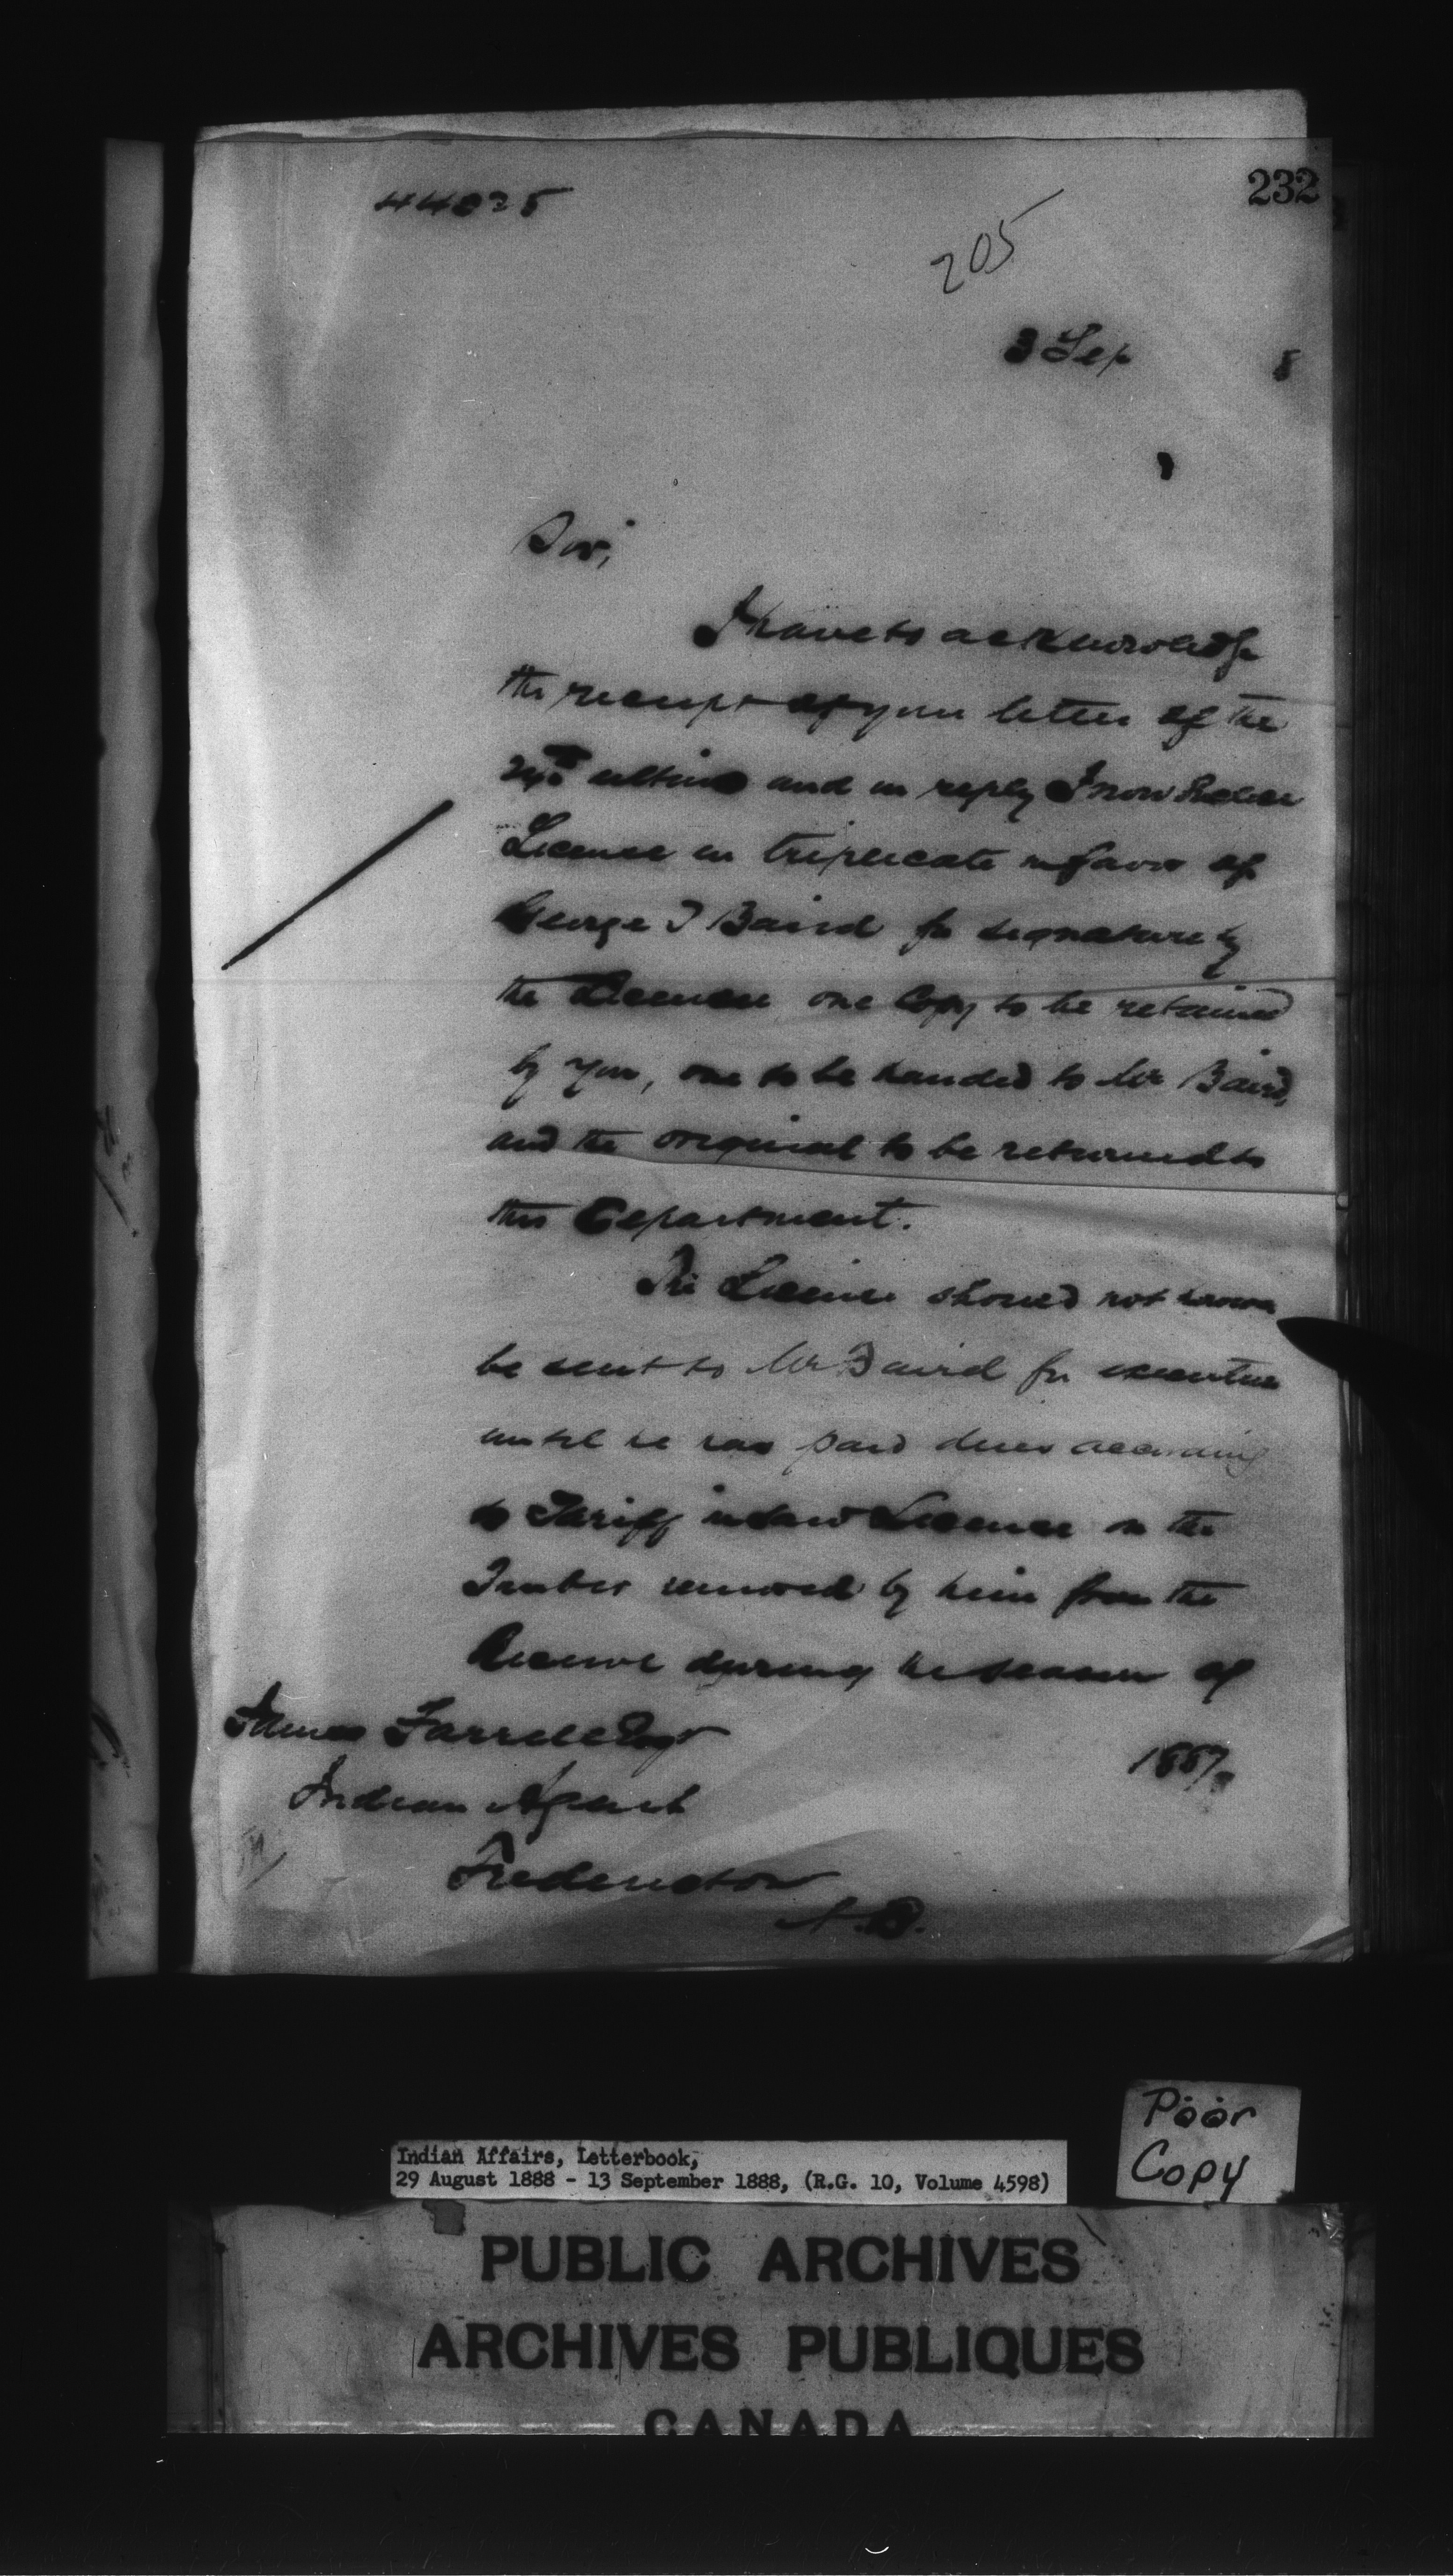 232
44025
205
3 Sep 8
Sir,
I have to acknowledge
the receipt of your letter of the
ultimo and in reply I now enclose
License in triplicate in favor of
George T Baird for signature by
the Licensee one Copy to be retained
by you, one to be handed to Mr Baird,
and the original to be returned to
this Department.
The License should not however
be sent to Mr Baird for execution
until he has paid dues according
to Tariff in said License on the
Timber removed by him from the
Reserve during the season of
1887/8
James Farrell Esqr
Indian Agent
Fredericton
N.B.
Poor
Copy
Indian Affairs, Letterbook,
29 August 1888 - 13 September 1888, (R.G. 10, Volume 4598)
PUBLIC ARCHIVES
ARCHIVES PUBLIQUES
CANADA